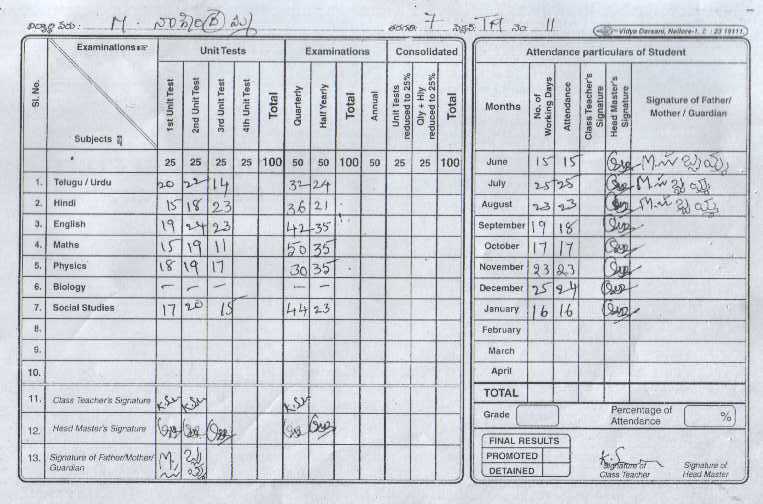 విద్యార్థి పేరు: M. తరగతి 7 సెక్షన్ TM నెం 11
Vidya Darsani, Nellore-1.
Examinations Unit Tests Examinations Consolidated
Sl. No. Subjects 1st Unit Test 2nd Unit Test 3rd Unit Test 4th Unit Test Total Quarterly Half Yearly Total Annual Unit Tests reduced to 25% Qly + Hly reduced to 25% Total
25 25 25 25 100 50 50 100 50 25 25 100
1. Telugu / Urdu 20 22 14 32 24
2. Hindi 15 18 23 36 21
3. English 19 24 23 42 35
4. Maths 15 19 11 50 35
5. Physics 18 19 17 30 35
6. Biology – – – –
7. Social Studies 17 20 15 44 23
8.
9.
10.
11. Class Teacher's Signature
12. Head Master's Signature
13. Signature of Father/Mother/
Guardian
Attendance particulars of Student
Months No. of Working Days Attendance Class Teacher's Signature Head Master's Signature Signature of Father/ Mother / Guardian
June 15 15
July 25 25
August 23 23
September 19 18
October 17 17
November 23 23
December 25 24
January 16 16
February
March
April
TOTAL
Grade Percentage of Attendance %
FINAL RESULTS
PROMOTED
DETAINED
Signature of Class Teacher
Signature of Head Master